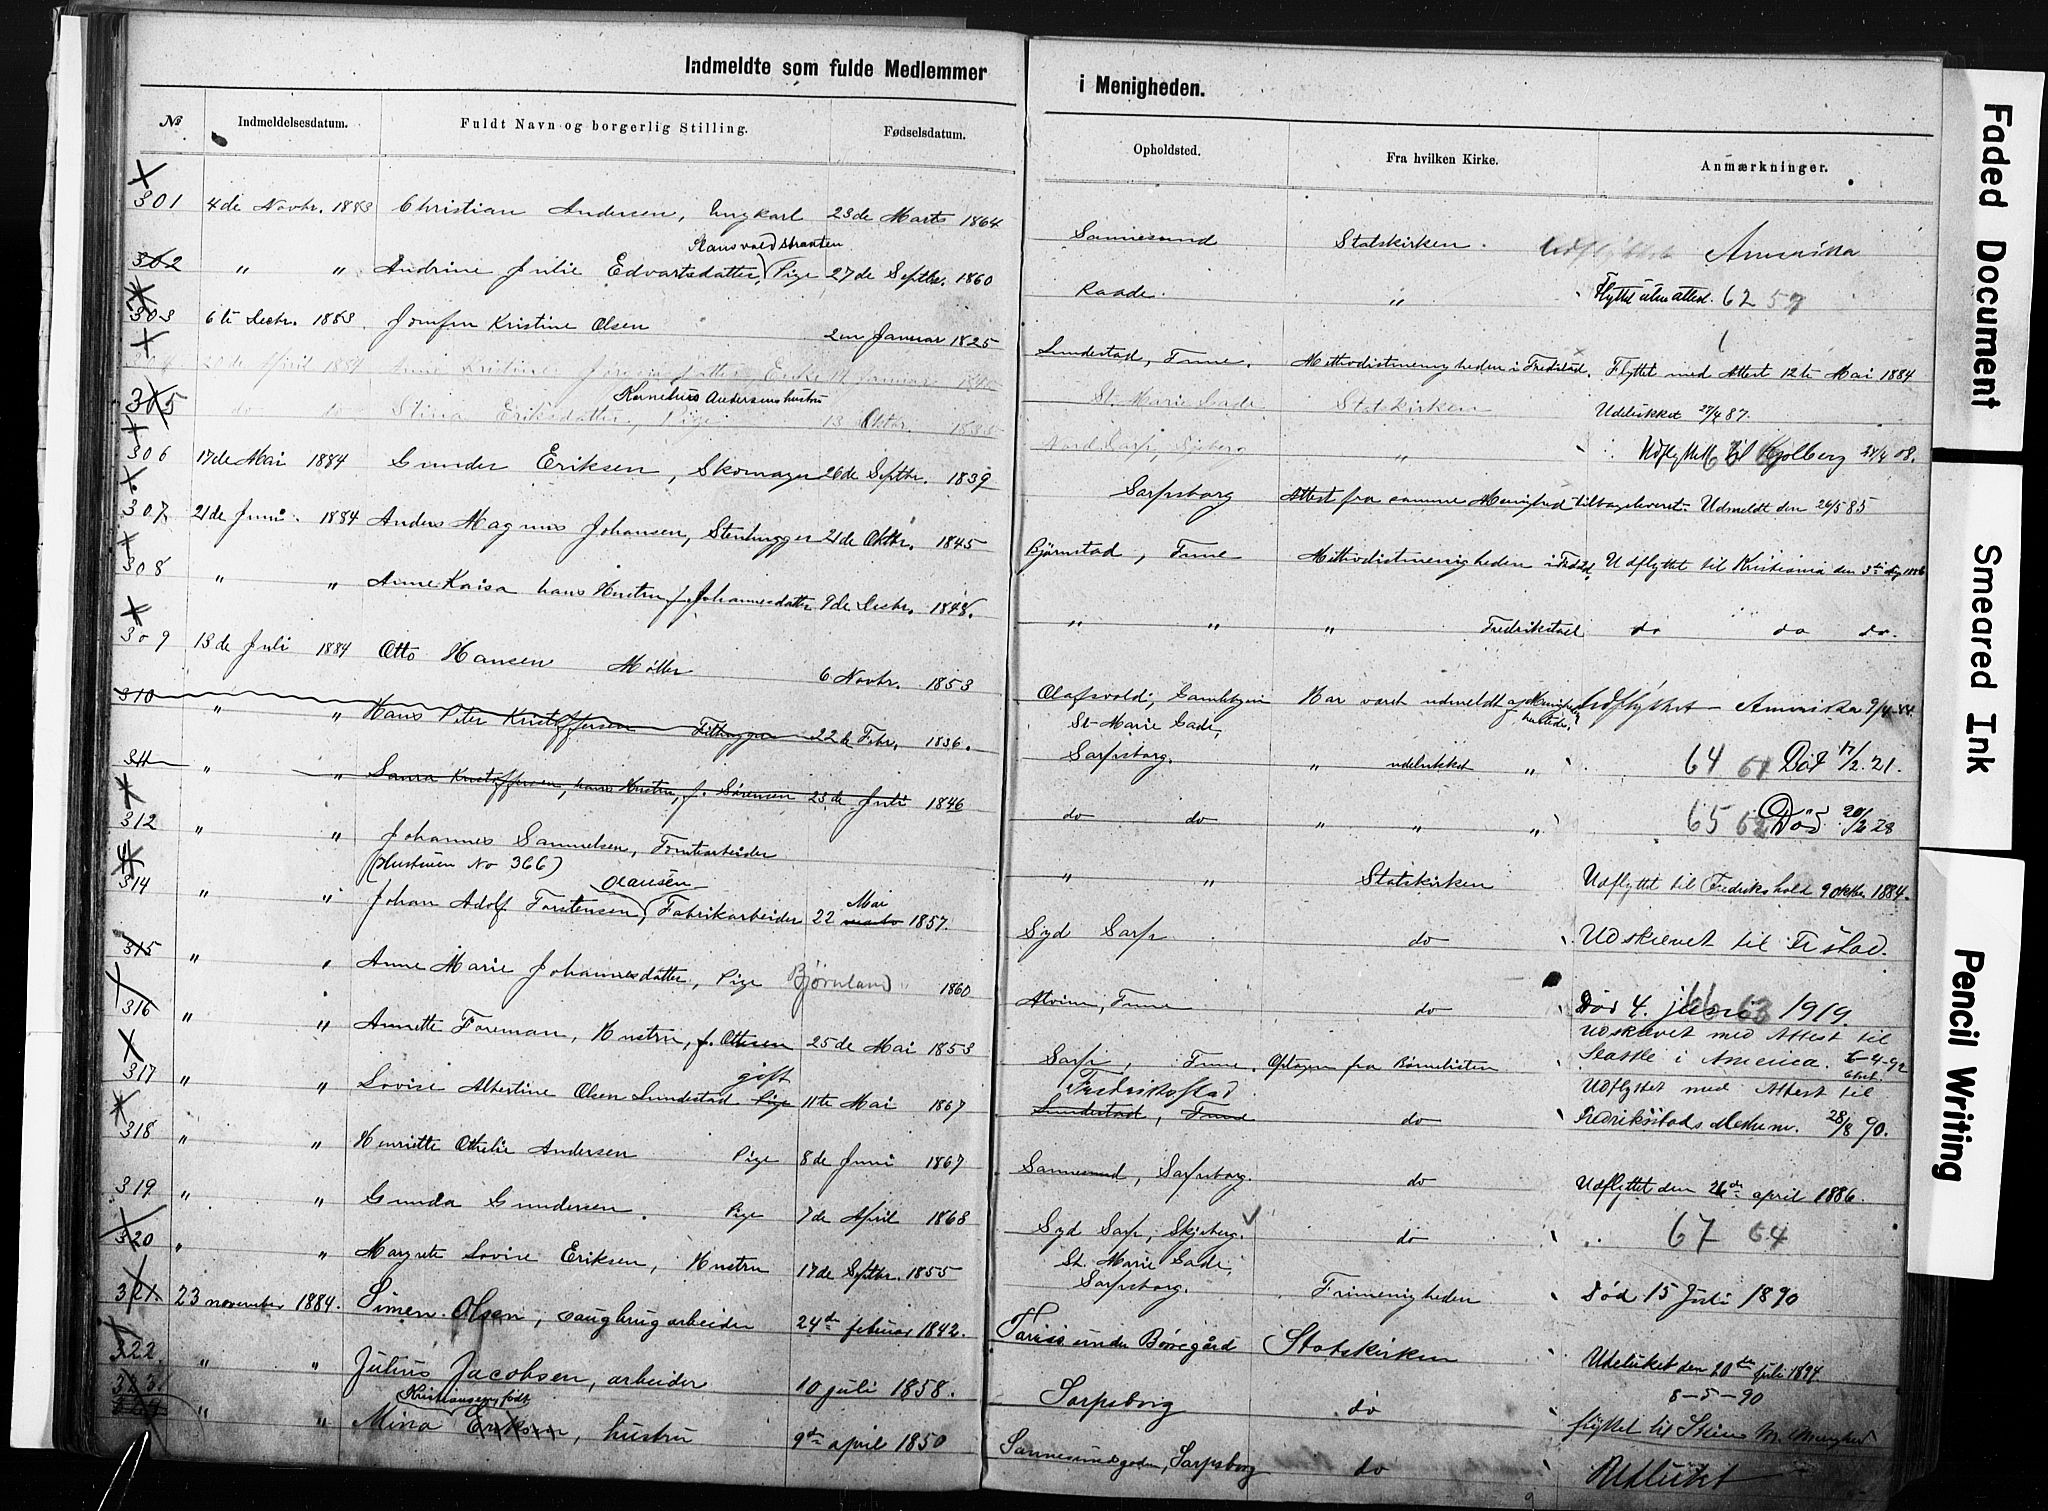 Indmeldte som fulde Medlemmer
i Menigheden.
№ Indmeldelsesdatum. Fuldt Navn og borgerlig Stilling. Fødselsdatum.
Opholdsted. Fra hvilken Kirke. Anmærkninger.
301 4de Novbr. 1883 Christian Andersen, Ungkarl 23de Marts 1864
Sannesund Statskirken. Udflyttet Amerika
302 " " Andrine Julie Edvartsdatter, Pige 27de Septbr. 1860
Raade. " Flyttet uten attest. 62 57
303 6te Decbr. 1883. Jomfru Kristine Olsen 2en Januar 1825
Lundestad, Tune. Methodistmenigheden i Fredstad. Flyttet med Attest 12te Mai 1884
304 20de April 1884 Anne Kristine
St. Marie Gade. Statskirken Udelukket 27/4 87.
Kornelius Andersens hustru
305 do do Stina Eriksdatter, Pige 13 Oktbr.
Nord Sarp, Sjeberg " Udflyttet til Kjølberg 24/4 08.
306 17de Mai 1884 Gunder Eriksen, Skomager 26de Septbr. 1839
Sarpsborg Attest fra samme Menighed tilbageleveret. Udmeldt den 26/5 85
307 21de Juni 1884 Anders Magnus Johansen, Stenhugger 21de Oktbr. 1845
Bjørnstad, Tune Methodistmenigheden i Fredstd. Udflyttet til Kristiania den 3te
308 " " Anne Kaisa hans Hustru f. Johannesdatter 9de Decbr. 1848.
" " " Fredrikstad do do do.
309 13de Juli 1884 Otto Hansen Møller 6 Novbr. 1853
Olafsvold, Gamlebyen Har været udmeldt Udflyttet Amerika 9/4 88.
310 " " Hans Peter Kristoffersen 22de Febr. 1836.
St. Marie Gade,
Sarpsborg. " udelukket " 64 61 Död 17/2. 21.
311 " " Laura Kristoffersen, hans Hustru, f. Sörensen 25de Juli 1846
do do " " " 65 62 Död 20/2 28
312 " " Johannes Samuelsen, Tomtearbeider
(Hustruen No 366)
" " Statskirken Udflyttet til Fredrikshald 9 oktbr. 1884.
Olausen
Mai
314 " " Johan Adolf Torstensen, Fabrikarbeider 22 1857.
Syd Sarp do Udskrevet til Fr stad.
315 " " Anne Marie Johannesdatter, Pige Bjørnland 1860
Alvim, Tune do Död 4. juni 1919. 66 63
316 " " Annette Foreman, Hustru, f. Ottesen 25de Mai 1853
Udskrevet med Attest til
Sarp, Tune. Optagen fra Børnelisten Seattle i America. 4-92
gift
317 " " Lovise Albertine Olsen Lundestad Pige 11te Mai 1867
Fredriksstad Udflyttet med Attest til
Lundestad, Tune do Fredriksstads Methm. 28/8 90.
318 " " Henriette Othelie Andersen Pige 8de Juni 1867
Sannesund, Sarpsborg. do Udflyttet den 26de april 1886.
319 " " Gunda Gundersen. Pige 7de April 1868
Syd Sarp, Skjeberg. do 67 64
320 " " Margrete Lovise Eriksen, Hustru 17de Septbr. 1855
St. Marie Gade,
Sarpsborg. Frimenigheden Död 15 Juli 1890
321. 23 november 1884. Simen Olsen, saugbrugarbeider 24de februar 1842.
under Borregård Statskirken Udelukket den 20de juli 1897
322. " " Julius Jacobsen, arbeider 10 juli 1858.
8-5-90
Sarpsborg do flyttet til Steins M. Menighed
Kristiansen, født
323. " " Mina Eriksen, hustru 9de april 1850
Sannesundsgaden, Sarpsborg do Udelukt
Faded Document
Smeared Ink
Pencil Writing